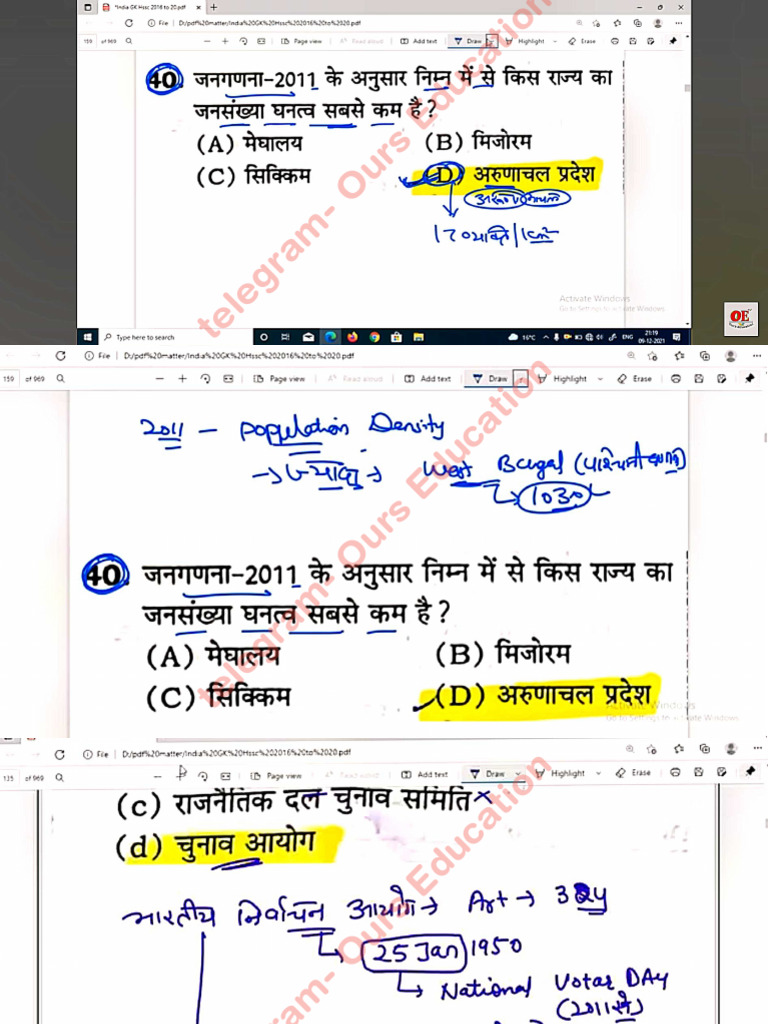 *India GK Hssc 2016 to 20.pdf
File D:/pdf%20matter/India%20GK%20Hssc%202016%20to%2020.pdf
159 of 969 Page view Read aloud Add text Draw Highlight Erase
40. जनगणना-2011 के अनुसार निम्न में से किस राज्य का
जनसंख्या घनत्व सबसे कम है?
(A) मेघालय (B) मिजोरम
(C) सिक्किम (D) अरुणाचल प्रदेश
Activate Windows
Go to Settings to activate Windows.
Type here to search 16°C ENG 21:19
09-12-2021
OE
File D:/pdf%20matter/India%20GK%20Hssc%202016%20to%2020.pdf
159 of 969 Page view Read aloud Add text Draw Highlight Erase
2011 - Population Density
West
1030
40. जनगणना-2011 के अनुसार निम्न में से किस राज्य का
जनसंख्या घनत्व सबसे कम है?
(A) मेघालय (B) मिजोरम
(C) सिक्किम (D) अरुणाचल प्रदेश
Activate Windows
Go to Settings to activate Windows.
File D:/pdf%20matter/India%20GK%20Hssc%202016%20to%2020.pdf
135 of 969 Page view Read aloud Add text Draw Highlight Erase
(c) राजनैतिक दल चुनाव समिति
(d) चुनाव आयोग
भारतीय निर्वाचन आयोग → Art → 324
25 Jan 1950
National Votar DAy
(2011 से)
telegram- Ours Education
telegram- Ours Education
telegram- Ours Education